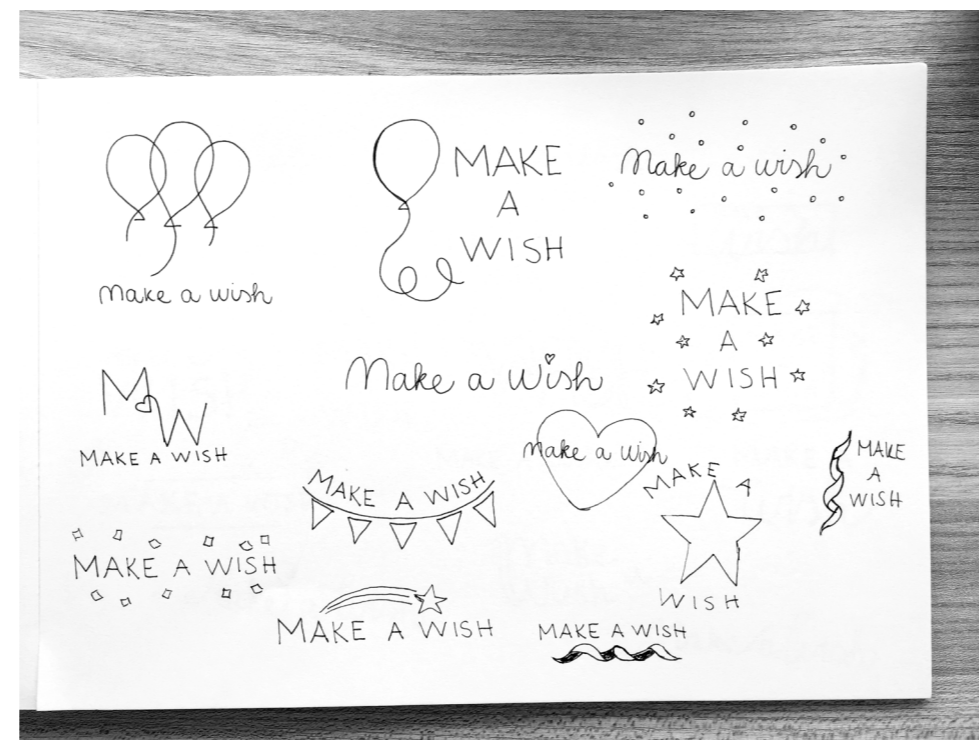 Make a wish
MAKE
A
WISH
Make a wish
MAKE
A
WISH
MAW
MAKE A WISH
Make a Wish
make a wish
MAKE
A
WISH
MAKE A WISH
MAKE A
WISH
MAKE A WISH
MAKE A WISH
MAKE A WISH